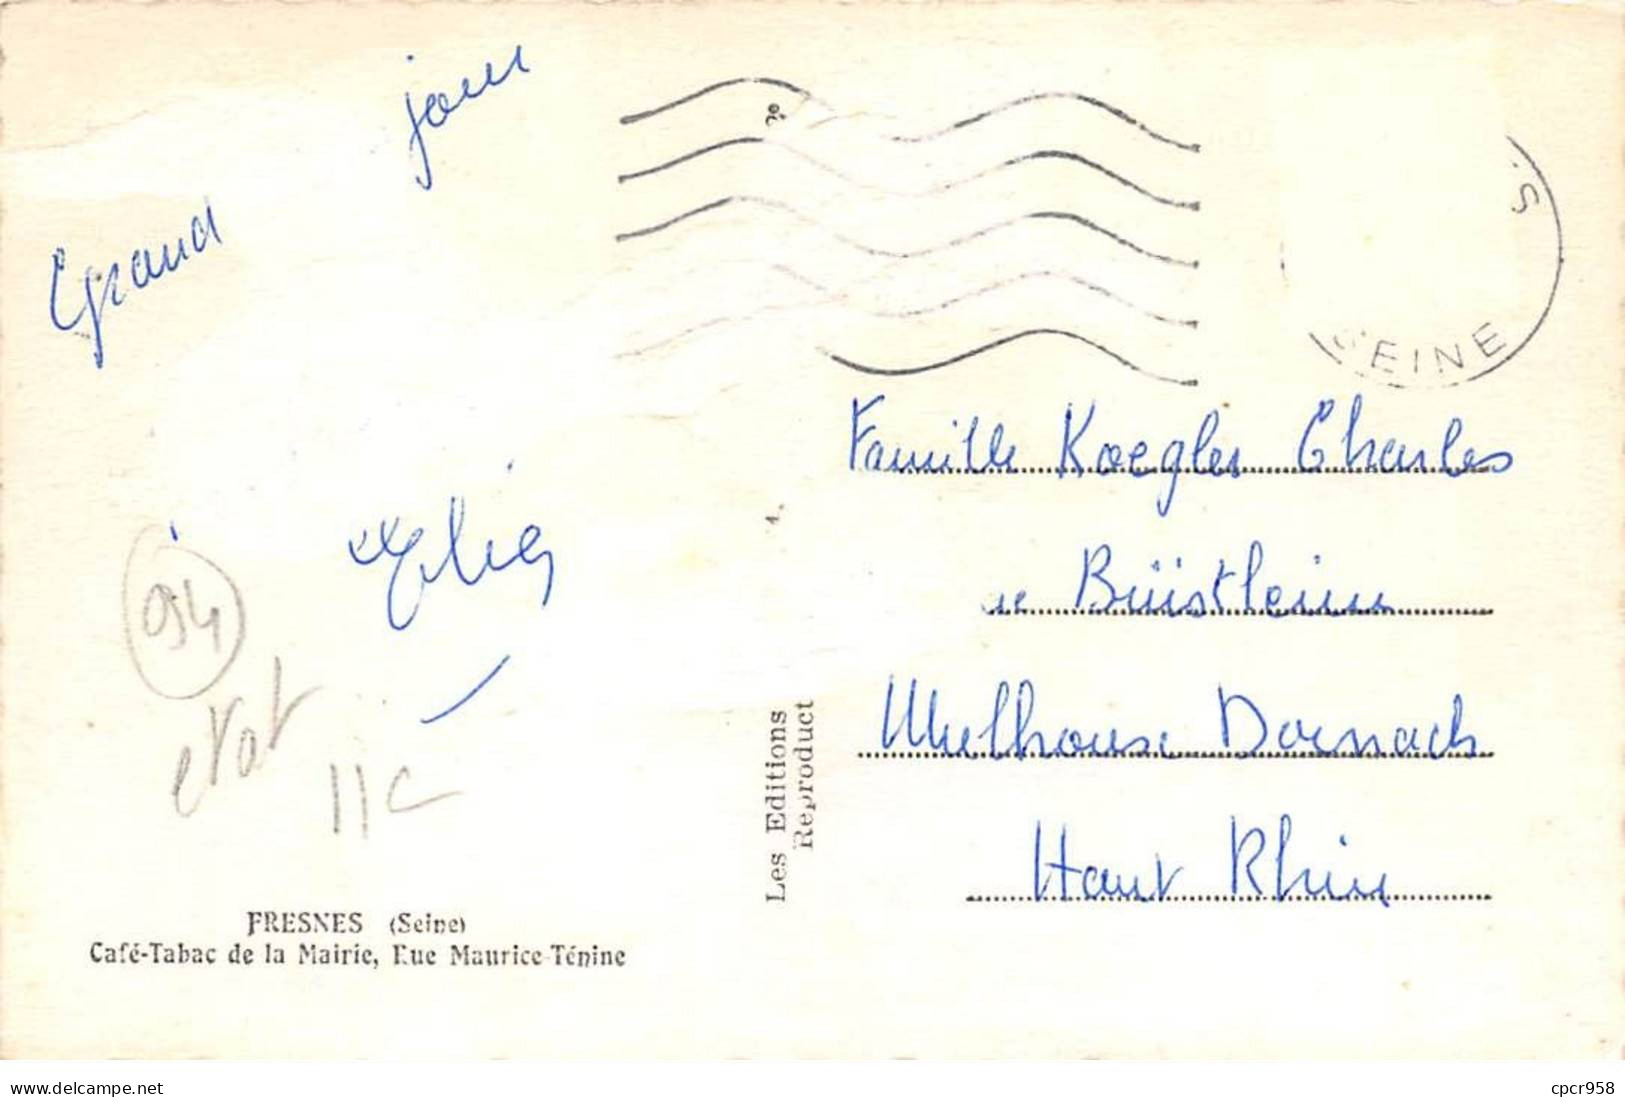 Grand jour
S
SEINE
Famille Koegler Charles
Büistleinn
Mulhouse Dornach
Haut Rhin
94
etat
11c
1.
Les Editions
Reproduct
FRESNES (Seine)
Café-Tabac de la Mairie, Rue Maurice-Ténine
delcampe.net
cpcr958